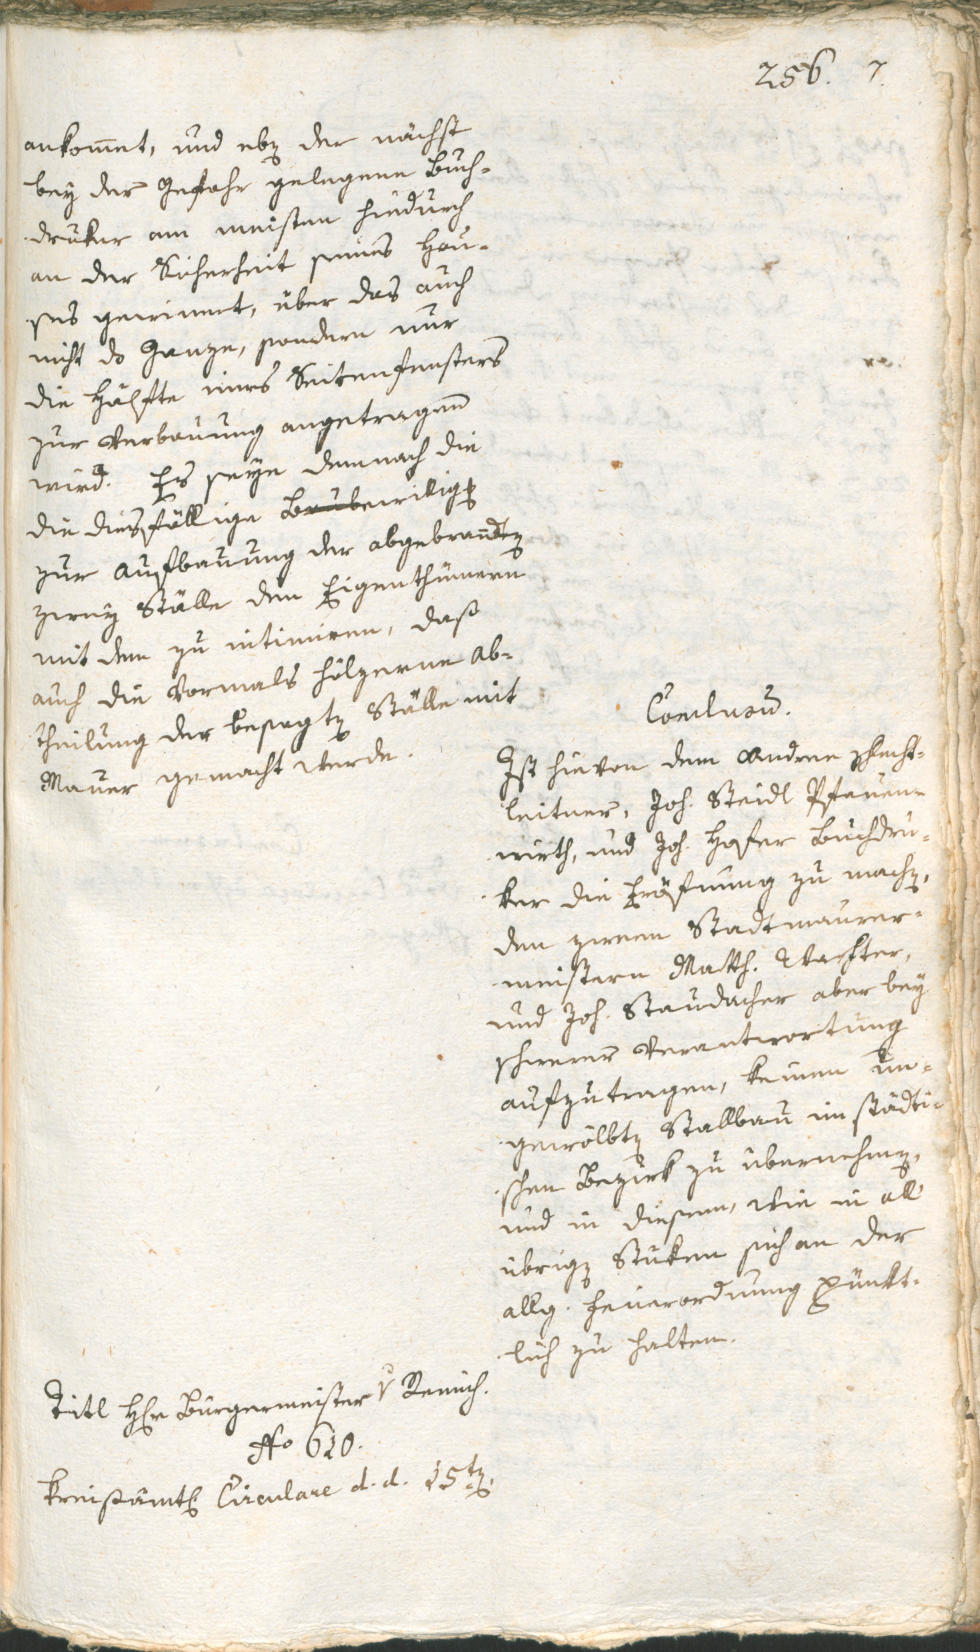 256. 7.
ankom̅et, und ebẽ der nächst
bey der Gefahr gelegene Buch-
druker am meisten hiedurch
an der Sicherheit seines Hau-
ses gewinnet, über das auch
nicht ds Ganze, sondern nur
die Hälfte eines Seitenfensters
zur Verbauung angetragen
wird. Es seye demnach die
die diesfällige Bewilligg
zur Aufbauung der abgebrandtẽ
zwey Ställe den Eigenthümern
mit dem zu intimiren, dass
auch die vormals hölzerne Ab-
theilung der besagtẽ Ställe mit
Mauer gemacht werde.
Conclusum.
Ist hievon dem Andree Schlecht-
leitner, Joh. Steidl Pfauen-
wirth, und Joh. Hofer Buchdru-
ker die Eröfnung zu machẽ,
den zween Stadtmaurer-
meistern Math. Wachter,
und Joh. Staudacher aber bey
schwerer Verantwortung
aufzutragen, keinen un-
gewölbtẽ Stallbau im städti-
schen Bezirk zu übernehmẽ,
und in diesem, wie in all
übrigẽ Stüken sich an der
allg. Feuerordnung pünkt-
lich zu halten.
Titl Hr Bürgermeister v Remich.
No 610.
Kreisämtl Circulare d. d. 15tẽ